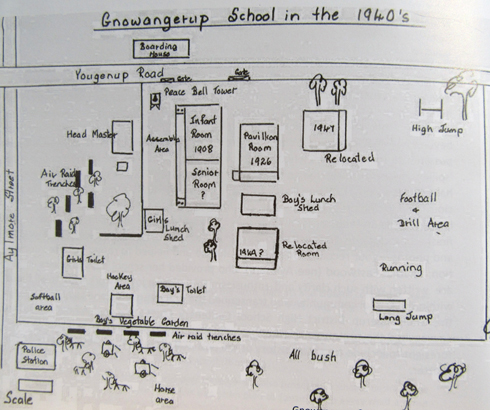 Gnowangerup School in the 1940's
Boarding
House
Yougenup Road
Gate
Gate
Peace Bell Tower
Head Master
Assembly
Area
Infant
Room
1908
Senior
Room
?
Pavilion
Room
1926
1947
Relocated
High Jump
Air Raid
Trenches
Aylmore Street
Girls
Lunch
Shed
Boy's Lunch
Shed
Football
&
Drill Area
Relocated
Room
Girls Toilet
Hockey
Area
Boy's Toilet
Running
Softball
area
Long Jump
Boy's Vegetable Garden
Air raid trenches
Police
Station
All bush
Horse
area
Scale